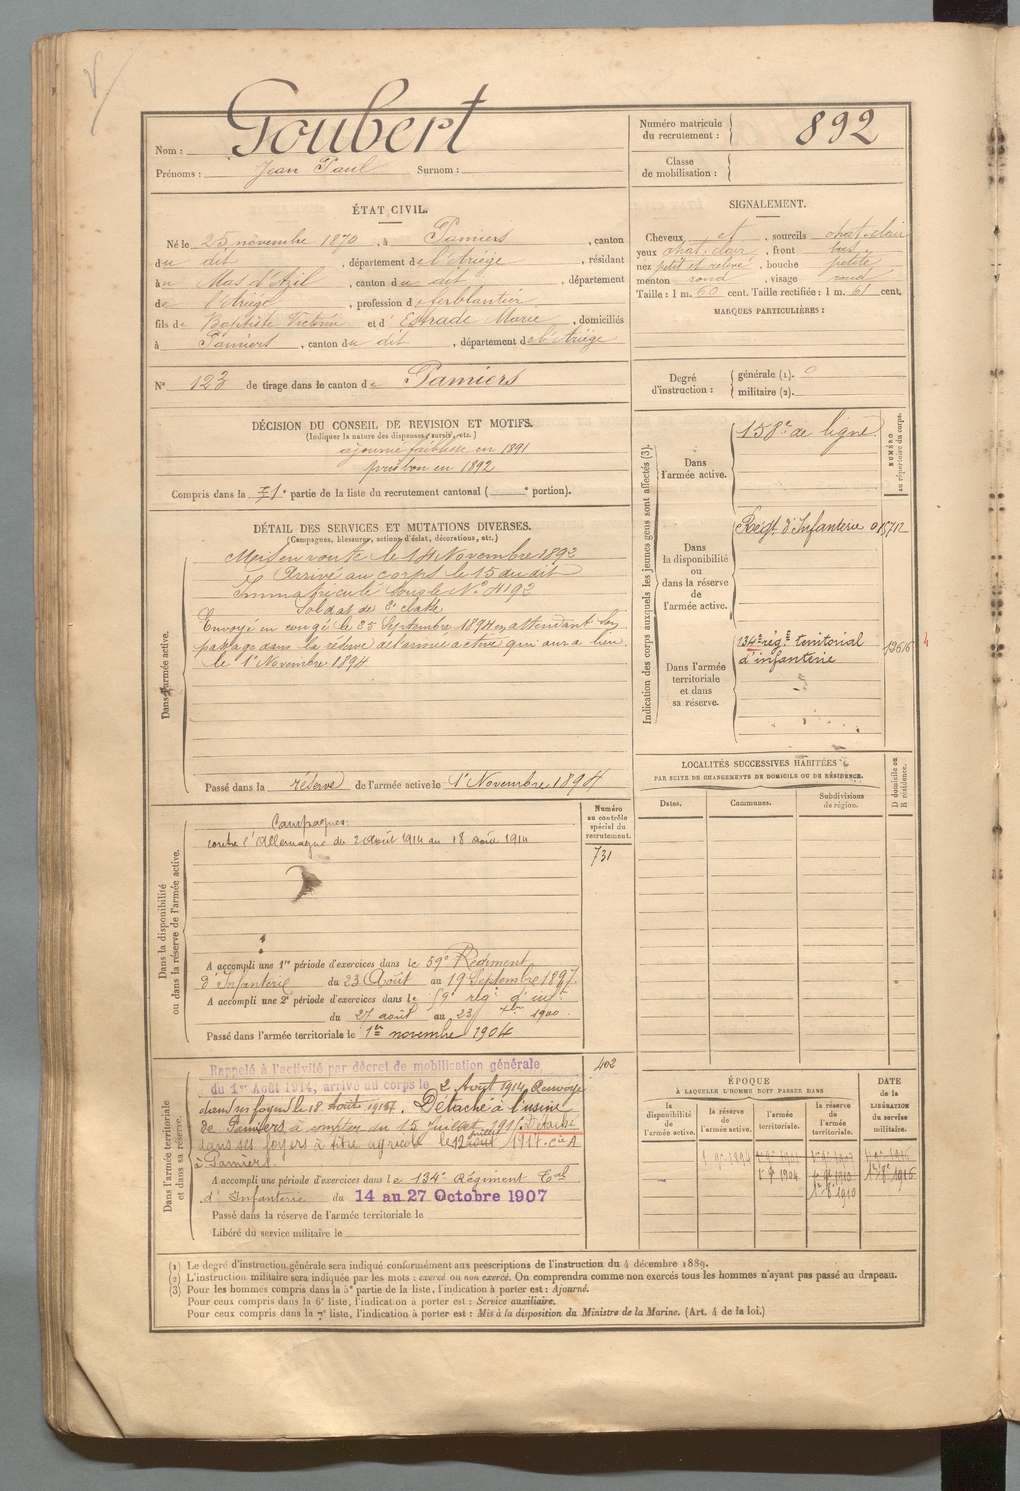 Nom : Goubert
Prénoms : Jean Paul Surnom :
Numéro matricule du recrutement : 892
Classe de mobilisation :
ÉTAT CIVIL.
Né le 25 novembre 1870, à Pamiers, canton
du dit, département de l'Ariège, résidant
à u Mas d'Azil, canton du dit, département
de l'Ariège, profession de ferblantier
fils de Baptiste Victorin et d'Estrade Marie, domiciliés
à Pamiers, canton du dit, département de l'Ariège
N° 123 de tirage dans le canton de Pamiers
SIGNALEMENT.
Cheveux et, sourcils chat. clair
yeux chat. clair, front bas
nez petit et relevé, bouche petite
menton rond, visage rond
Taille : 1 m. 60 cent. Taille rectifiée : 1 m. 61 cent.
MARQUES PARTICULIÈRES :
Degré d'instruction : générale (1). 0
militaire (2).
DÉCISION DU CONSEIL DE REVISION ET MOTIFS.
(Indiquer la nature des dispenses, sursis, etc.)
ajourné faiblesse en 1891
pris bon en 1892
Compris dans la 1e partie de la liste du recrutement cantonal ( e portion).
DÉTAIL DES SERVICES ET MUTATIONS DIVERSES.
(Campagnes, blessures, actions d'éclat, décorations, etc.)
Dans l'armée active.
Mis en route le 14 Novembre 1892
Arrivé au corps le 15 du dit
Immatriculé sous le N° 4192
Soldat de 2e classe
Envoyé en congé le 25 Septembre 1894 en attendant son
passage dans la réserve de l'armée active qui aura lieu
le 1er Novembre 1894
Passé dans la réserve de l'armée active le 1er Novembre 1894
Indication des corps auxquels les jeunes gens sont affectés (3).
NUMÉRO au répertoire du corps.
Dans l'armée active.
158e de ligne
Dans la disponibilité ou dans la réserve de l'armée active.
Régt d'Infanterie
Dans l'armée territoriale et dans sa réserve.
134e rég. territorial
d'infanterie
LOCALITÉS SUCCESSIVES HABITÉES
PAR SUITE DE CHANGEMENTS DE DOMICILE OU DE RÉSIDENCE.
Dates. Communes. Subdivisions de région. D domicile ou R résidence.
Dans la disponibilité ou dans la réserve de l'armée active.
Numéro au contrôle spécial du recrutement.
731
Campagnes:
contre l'Allemagne du 2 août 1914 au 18 août 1914
A accompli une 1re période d'exercices dans le 59e Régiment
d'Infanterie du 23 Août au 19 Septembre 1897.
A accompli une 2e période d'exercices dans le 59e rég. d'inf.
du 27 août au 23 7bre 1900.
Passé dans l'armée territoriale le 1er novembre 1904
Dans l'armée territoriale et dans sa réserve.
402
Rappelé à l'activité par décret de mobilisation générale
du 1er Août 1914, arrivé au corps le 2 Août 1914 Renvoyé
dans ses foyers le 18 Août 1914. Détaché à l'usine
de Pamiers, à compter du 15 Juillet 191 Détaché
dans ses foyers à titre agricole le 12 août juillet 1917. Cie A
à Pamiers.
A accompli une période d'exercices dans le 134e Régiment Tal
d'Infanterie du 14 au 27 Octobre 1907
Passé dans la réserve de l'armée territoriale le
Libéré du service militaire le
ÉPOQUE
À LAQUELLE L'HOMME DOIT PASSER DANS
DATE de la LIBÉRATION du service militaire.
la disponibilité de l'armée active. la réserve de l'armée active. l'armée territoriale. la réserve de l'armée territoriale.
(1) Le degré d'instruction générale sera indiqué conformément aux prescriptions de l'instruction du 4 décembre 1889.
(2) L'instruction militaire sera indiquée par les mots : exercé ou non exercé. On comprendra comme non exercés tous les hommes n'ayant pas passé au drapeau.
(3) Pour les hommes compris dans la 5e partie de la liste, l'indication à porter est : Ajourné.
Pour ceux compris dans la 6e liste, l'indication à porter est : Service auxiliaire.
Pour ceux compris dans la 7e liste, l'indication à porter est : Mis à la disposition du Ministre de la Marine. (Art. 4 de la loi.)